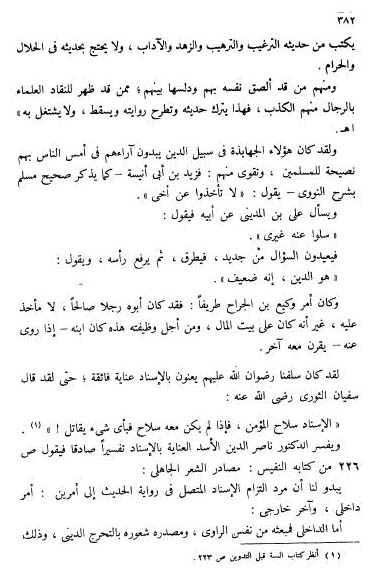 ٣٨٢
يكتب من حديثه الترغيب والترهيب والزهد والآداب ، ولا يحتج بحديثه فى الحلال
والحرام .
ومنهم من قد ألصق نفسه بهم ودلسها بينهم ؛ ممن قد ظهر للنقاد العلماء
بالرجال منهم الكذب ، فهذا يترك حديثه وتطرح روايته ويسقط ، ولا يشتغل به »
اهـ.
ولقد كان هؤلاء الجهابذة فى سبيل الدين يبدون آراءهم فى أمس الناس بهم
نصيحة للمسلمين ، وتقوى منهم : فزيد بن أبى أنيسة – كما يذكر صحيح مسلم
بشرح النووى – يقول : « لا تأخذوا عن أخى » .
ويسأل على بن المدينى عن أبيه فيقول :
« سلوا عنه غيرى » .
فيعيدون السؤال من جديد ، فيطرق ، ثم يرفع رأسه ، ويقول :
« هو الدين ، إنه ضعيف » .
وكان أمر وكيع بن الجراح طريفاً : فقد كان أبوه رجلا صالحاً ، لا مأخذ
عليه ، غير أنه كان على بيت المال ، ومن أجل وظيفته هذه كان ابنه – إذا روى
عنه – يقرن معه آخر .
لقد كان سلفنا رضوان الله عليهم يعنون بالإسناد عناية فائقة ؛ حتى لقد قال
سفيان الثورى رضى الله عنه :
« الإسناد سلاح المؤمن ، فإذا لم يكن معه سلاح فبأى شىء يقاتل ! » (١) .
ويفسر الدكتور ناصر الدين الأسد العناية بالإسناد تفسيراً صادقا فيقول ص
٢٢٦ من كتابه النفيس : مصادر الشعر الجاهلى :
يبدو لنا أن مرد التزام الإسناد المتصل فى رواية الحديث إلى أمرين : أمر
داخلى ، وآخر خارجى :
أما الداخلى فمبعثه من نفس الراوى ، ومصدره شعوره بالتحرج الدينى ، وذلك
(١) أنظر كتاب السنة قبل التدوين ص ٢٢٣ .